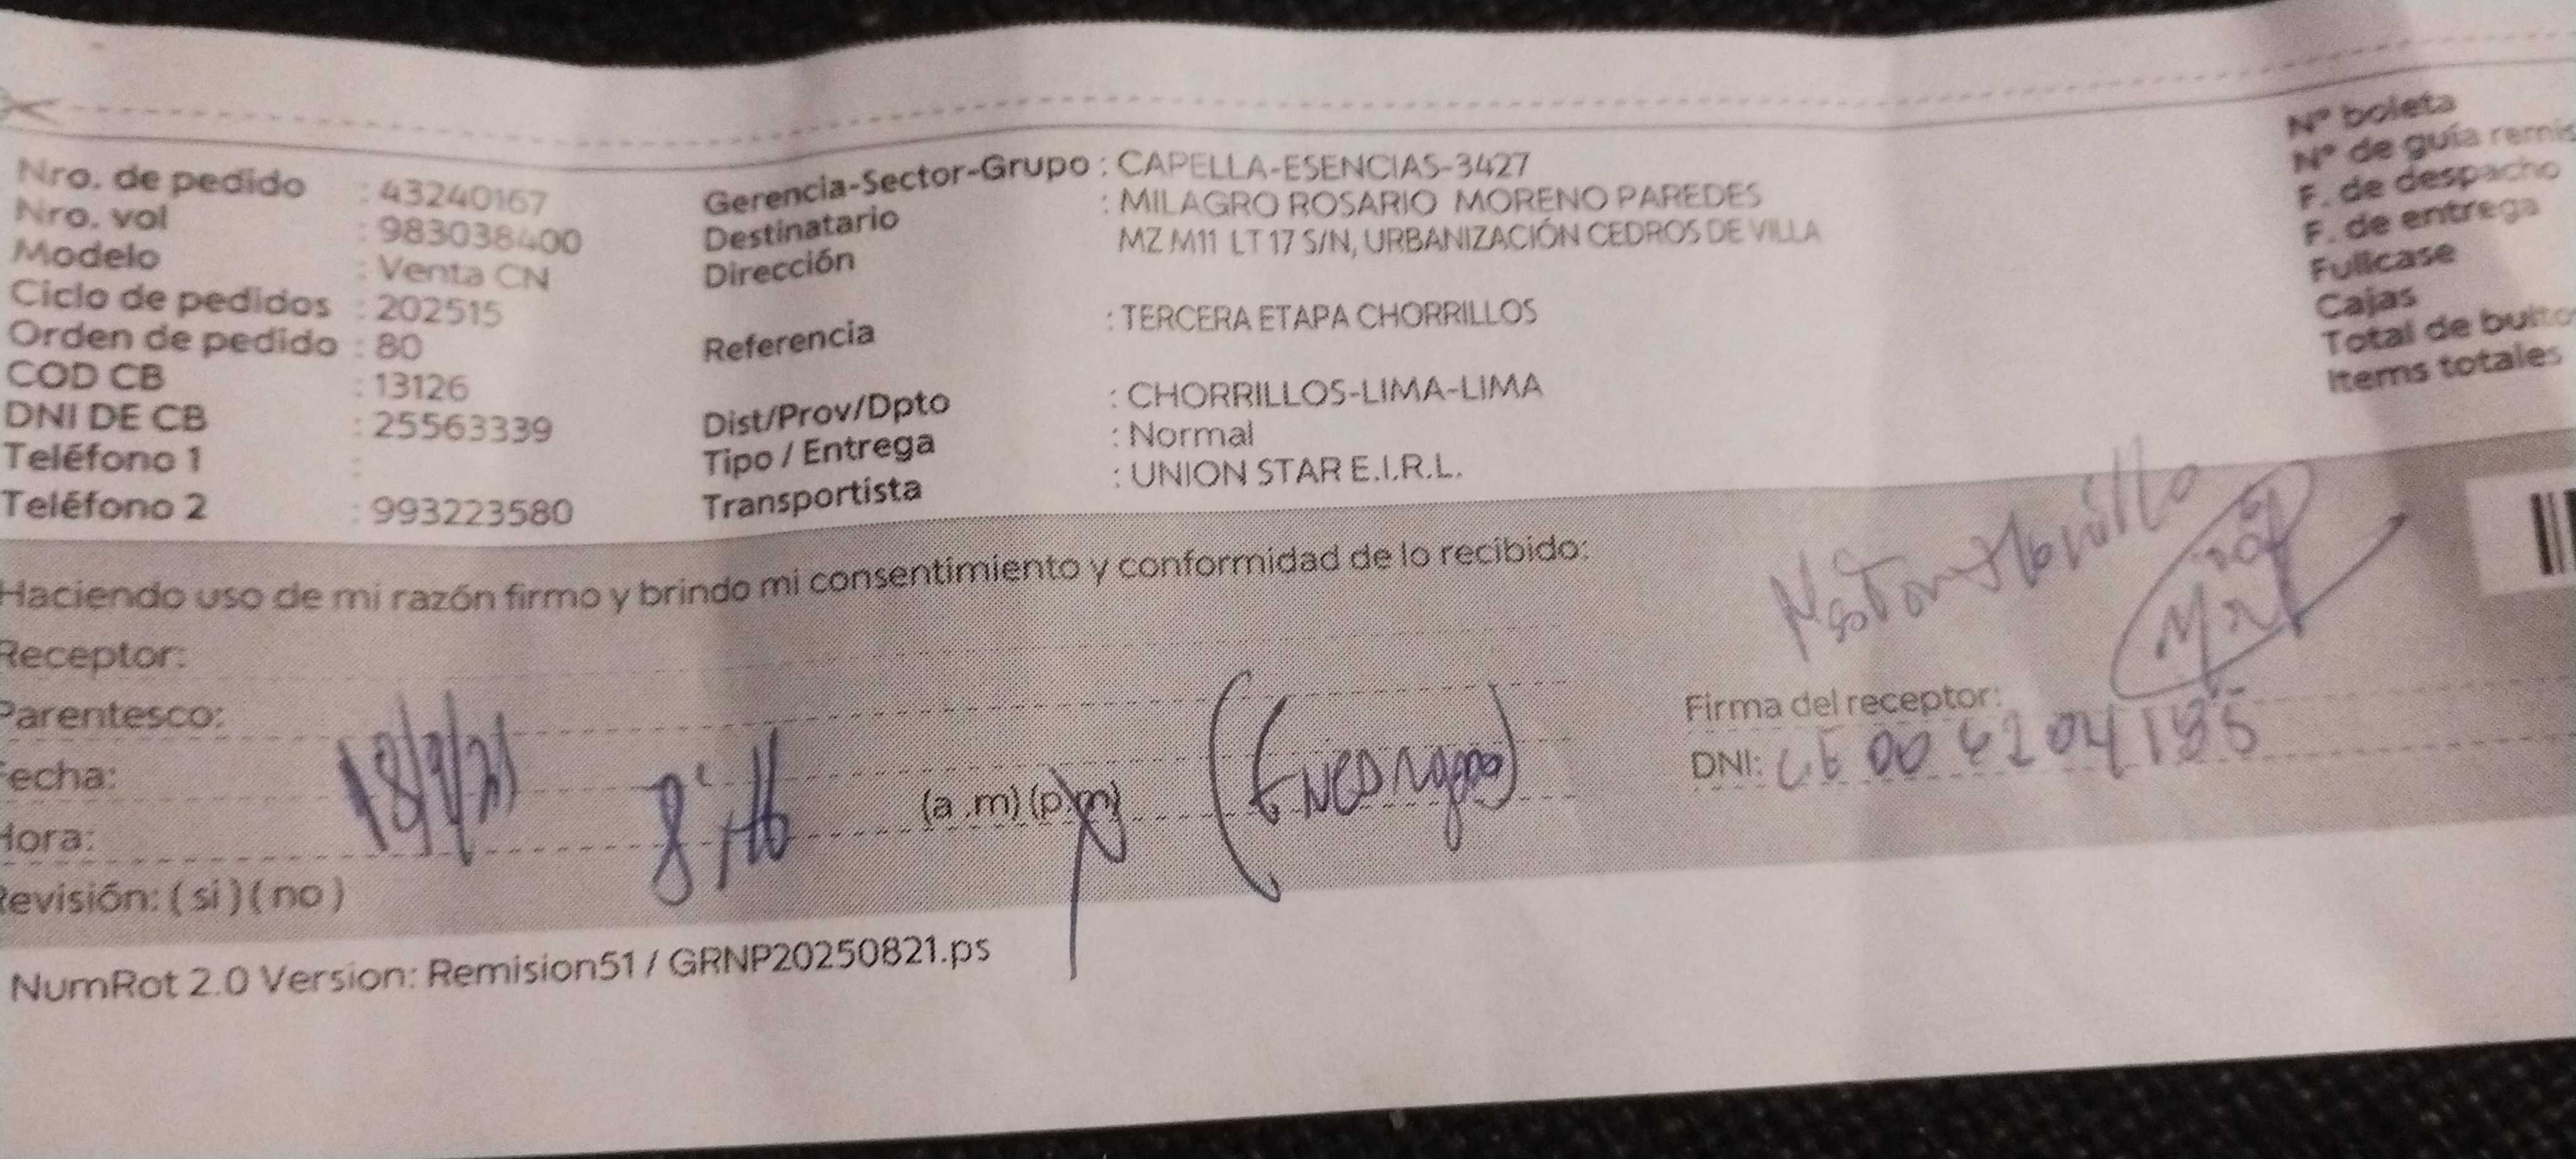 Nro. de pedido : 43240167
Nro. vol : 983038400
Modelo : Venta CN
Ciclo de pedidos : 202515
Orden de pedido : 80
COD CB : 13126
DNI DE CB : 25563339
Teléfono 1 :
Teléfono 2 : 993223580
Gerencia-Sector-Grupo : CAPELLA-ESENCIAS-3427
Destinatario : MILAGRO ROSARIO MORENO PAREDES
Dirección MZ M11 LT 17 S/N, URBANIZACIÓN CEDROS DE VILLA
Referencia : TERCERA ETAPA CHORRILLOS
Dist/Prov/Dpto : CHORRILLOS-LIMA-LIMA
Tipo / Entrega : Normal
Transportista : UNION STAR E.I.R.L.
N° boleta
N° de guía remis
F. de despacho
F. de entrega
Fullcase
Cajas
Total de bulto
Items totales
Haciendo uso de mi razón firmo y brindo mi consentimiento y conformidad de lo recibido:
Receptor:
Parentesco:
Fecha:
Hora: (a .m) (p.m)
Revisión: ( si ) ( no )
Firma del receptor:
DNI:
NumRot 2.0 Version: Remision51 / GRNP20250821.ps